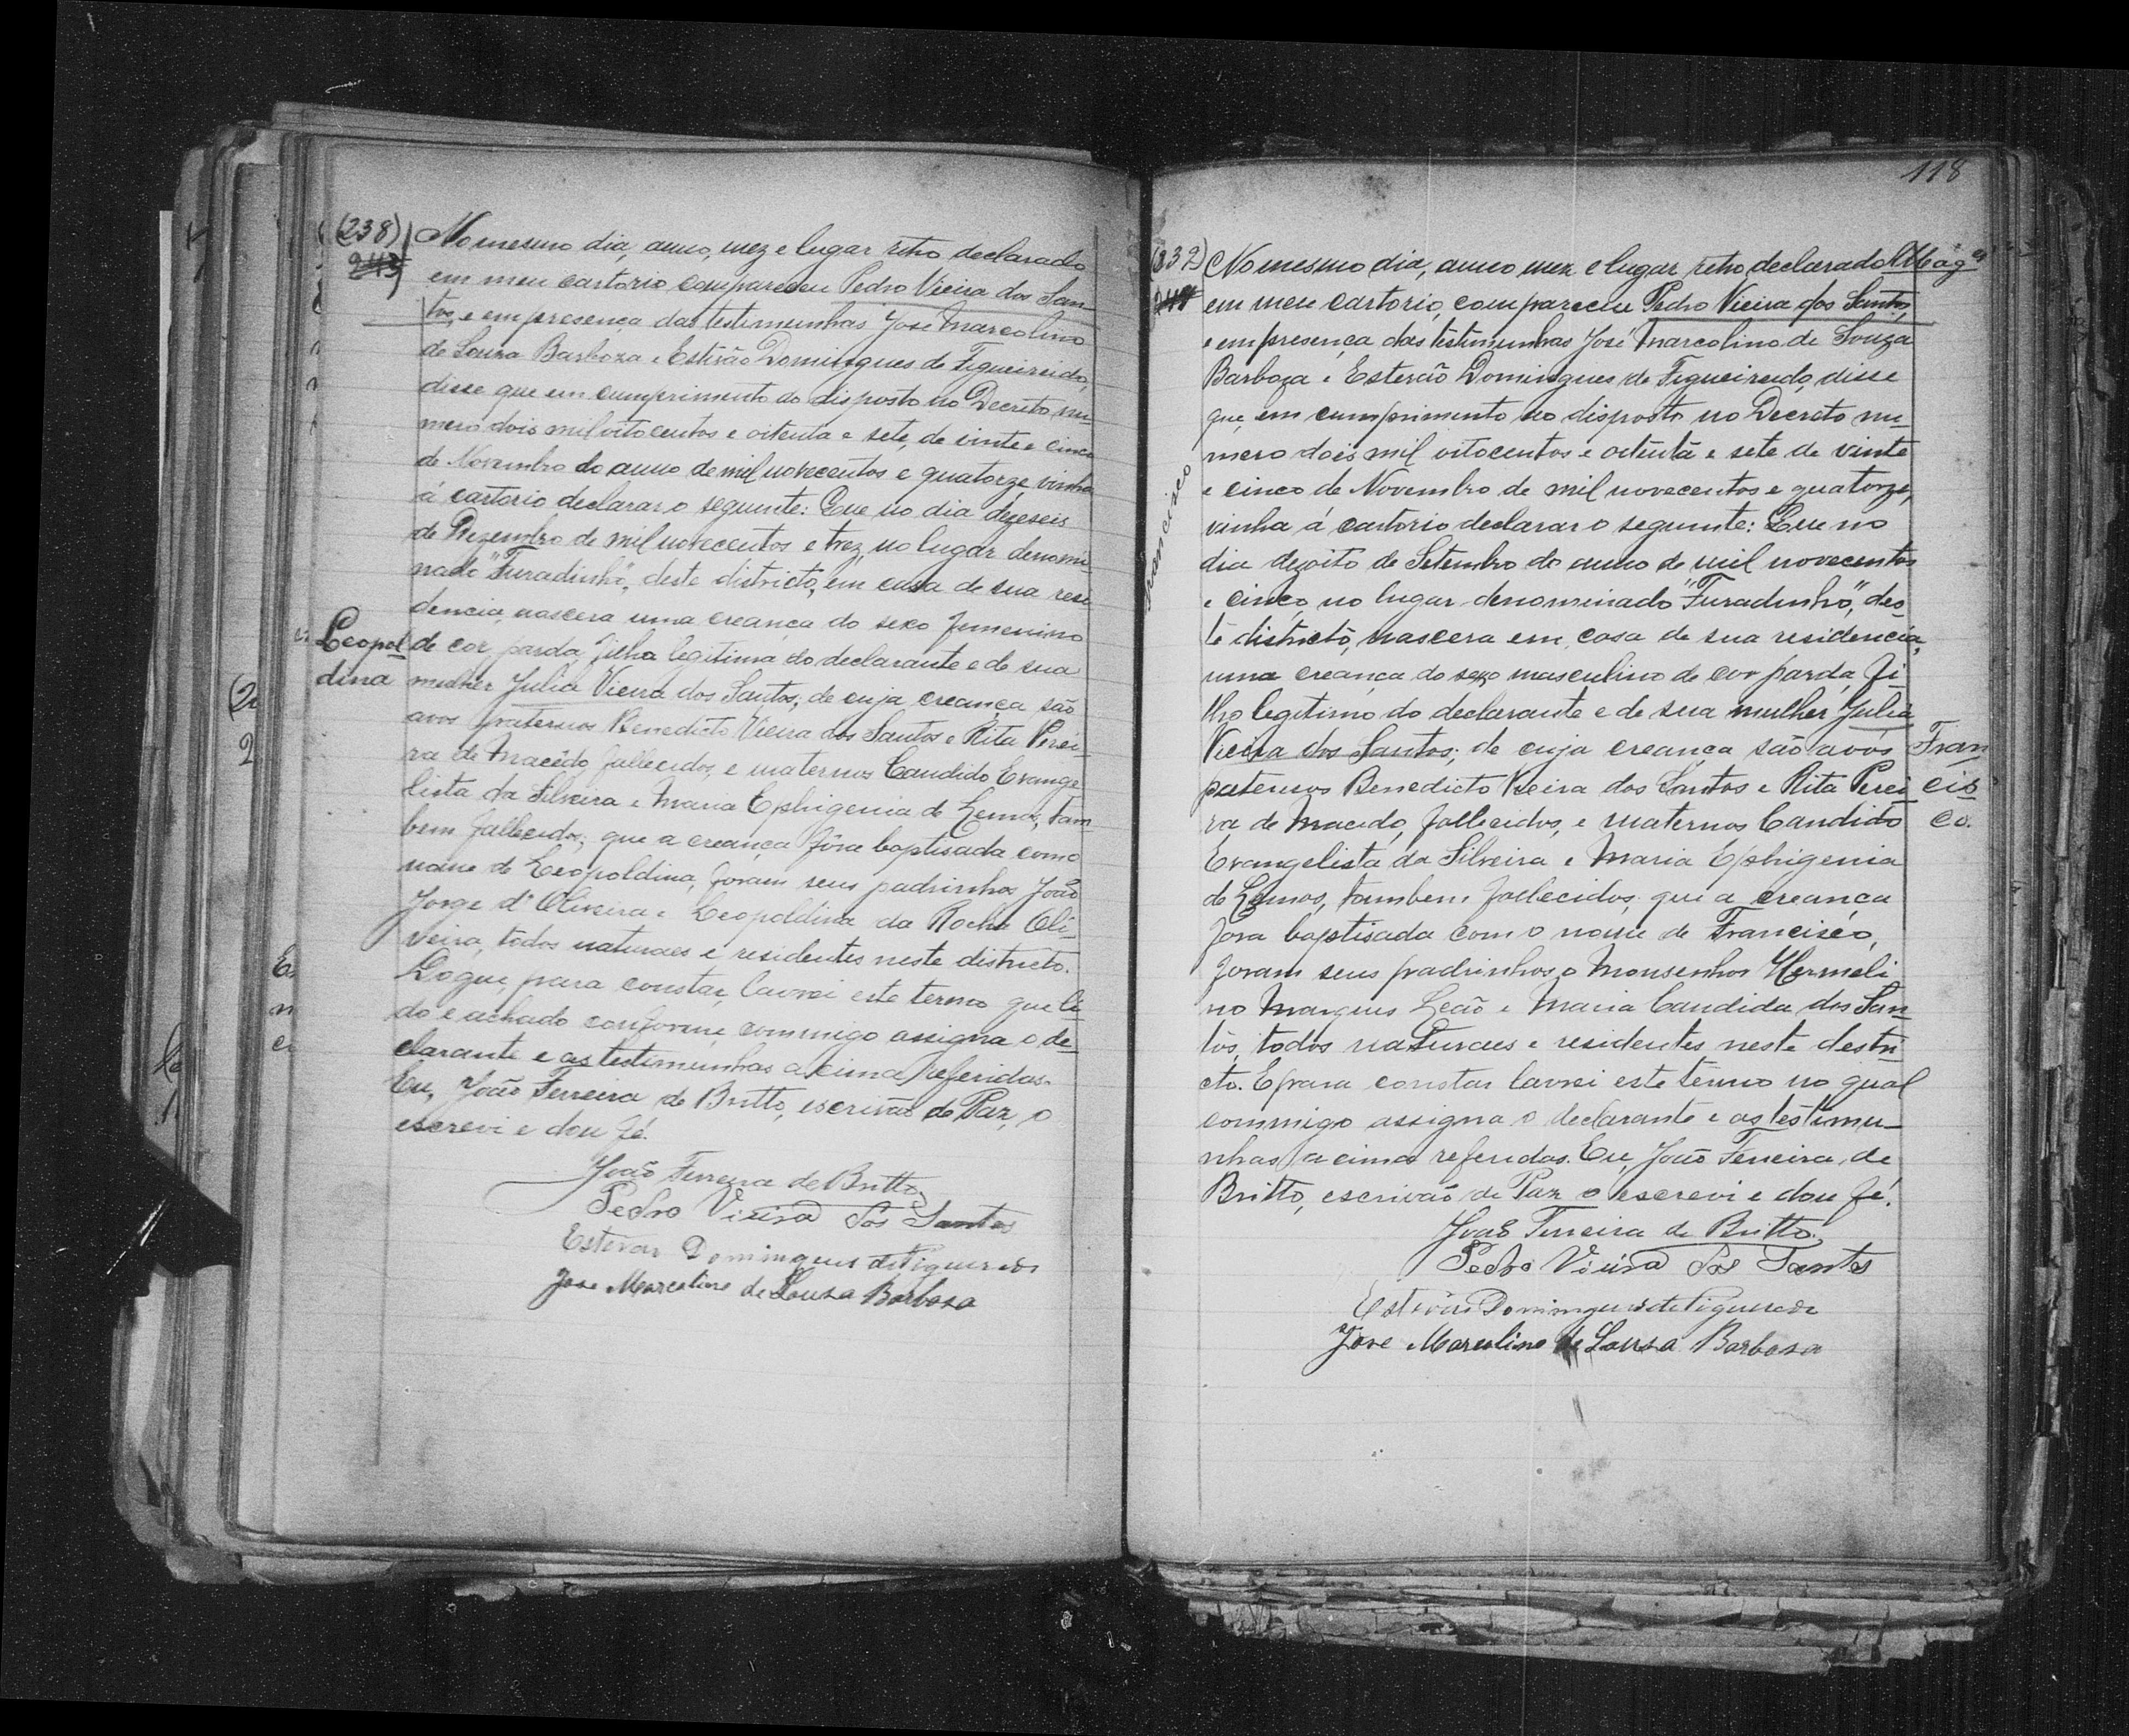 (238)
243
No mesmo dia, anno, mez e lugar retro declarado
em meu cartorio compareceu Pedro Vieira dos San-
tos, e em presença das testimunhas José Marcolino
de Souza Barboza e Estevão Domingues de Figueireido,
disse que em cumprimento ao disposto no Decreto nu-
mero dois mil oitocentos e oitenta e sete, de vinte e cinco
de Novembro do anno de mil novecentos e quatorze, vinha
á cartorio declarar o seguinte: Que no dia dezeseis
de Dezembro de mil novecentos e trez, no lugar denomi-
nado "Furadinho", deste districto, em casa de sua resi
dencia, nascera uma creança do sexo femenino
Leopol
dina
de cor parda, filha legitima do declarante e de sua
mulher Julia Vieira dos Santos; de cuja creança são
avos paternos Benedicto Vieira dos Santos e Rita Perei-
ra de Macêdo fallecidos, e maternos Candido Evange
lista da Silveira e Maria Ephigenia de Lemos, tam
bem fallecidos; que a creança fôra baptisada com o
nome de Leopoldina, foram seus padrinhos João
Jorge d'Oliveira e Leopoldina da Rocha Oli-
veira, todos naturaes e residentes neste districto.
Do que, para constar, lavrei este termo que li-
do e achado conforme, commigo assigna o de-
clarante e as testimunhas acima referidas.
Eu, João Ferreira de Britto, escrivão de Paz, o
escrevi e dou fé.
João Ferreira de Britto
Pedro Vieira dos Santos
Estevão Domingues de Figueiredo
José Marcolino de Souza Barbosa
118
No mesmo dia, anno mez e lugar retro declarado
em meu cartorio, compareceu Pedro Vieira dos Santos,
e em presença das testimunhas José Marcolino de Souza
Barboza e Estevão Domingues de Figueireido, disse
que, em cumprimento ao disposto no Decreto nu-
mero dois mil oitocentos e oitenta e sete de vinte
e cinco de Novembro de mil novecentos e quatorze,
vinha á cartorio declarar o seguinte: Que no
dia dezoito de Setembro do anno de mil novecentos
e cinco, no lugar denominado "Furadinho", des-
te districto, nascera em casa de sua residencia,
uma creança do sexo masculino de cor parda, fi-
lho legitimo do declarante e de sua mulher Julia
Vieira dos Santos; de cuja creança são avós
paternos Benedicto Vieira dos Santos e Rita Perei
ra de Macedo, fallecidos, e maternos Candido
Fran
cis
co.
Francisco
Evangelista da Silveira e Maria Ephigenia
de Lemos, tambem fallecidos; que a creança
fora baptisada com o nome de Francisco,
foram seus padrinhos o Monsenhor Hermeli
no Marques Leão e Maria Candida dos San-
tos, todos naturaes e residentes neste destri-
cto. E para constar lavrei este termo no qual
commigo assigna o declarante e as testimu-
nhas acima referidas. Eu, João Ferreira de
Britto, escrivão de Paz o escrevi e dou fé.
João Ferreira de Britto
Pedro Vieira dos Santos
Estevão Domingues de Figueiredo
José Marcolino de Souza Barbosa